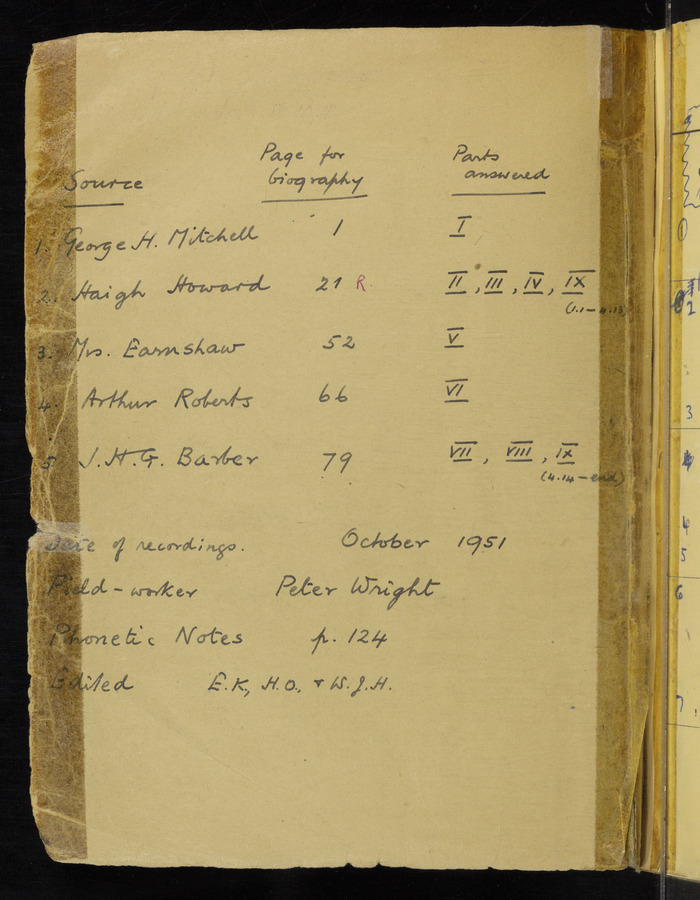 Source Page for biography Parts answered
1. George H. Mitchell 1 I
2. Haigh Howard 21 R. II, III, IV, IX
(1.1–4.13)
3. Mrs. Earnshaw 52 V
4. Arthur Roberts 66 VI
5 J.H.G. Barber 79 VII, VIII, IX
(4.14–end)
Date of recordings. October 1951
Field-worker Peter Wright
Phonetic Notes p. 124
Edited E.K., H.O., + W.J.H.
1
2
3
4
5
6
7.